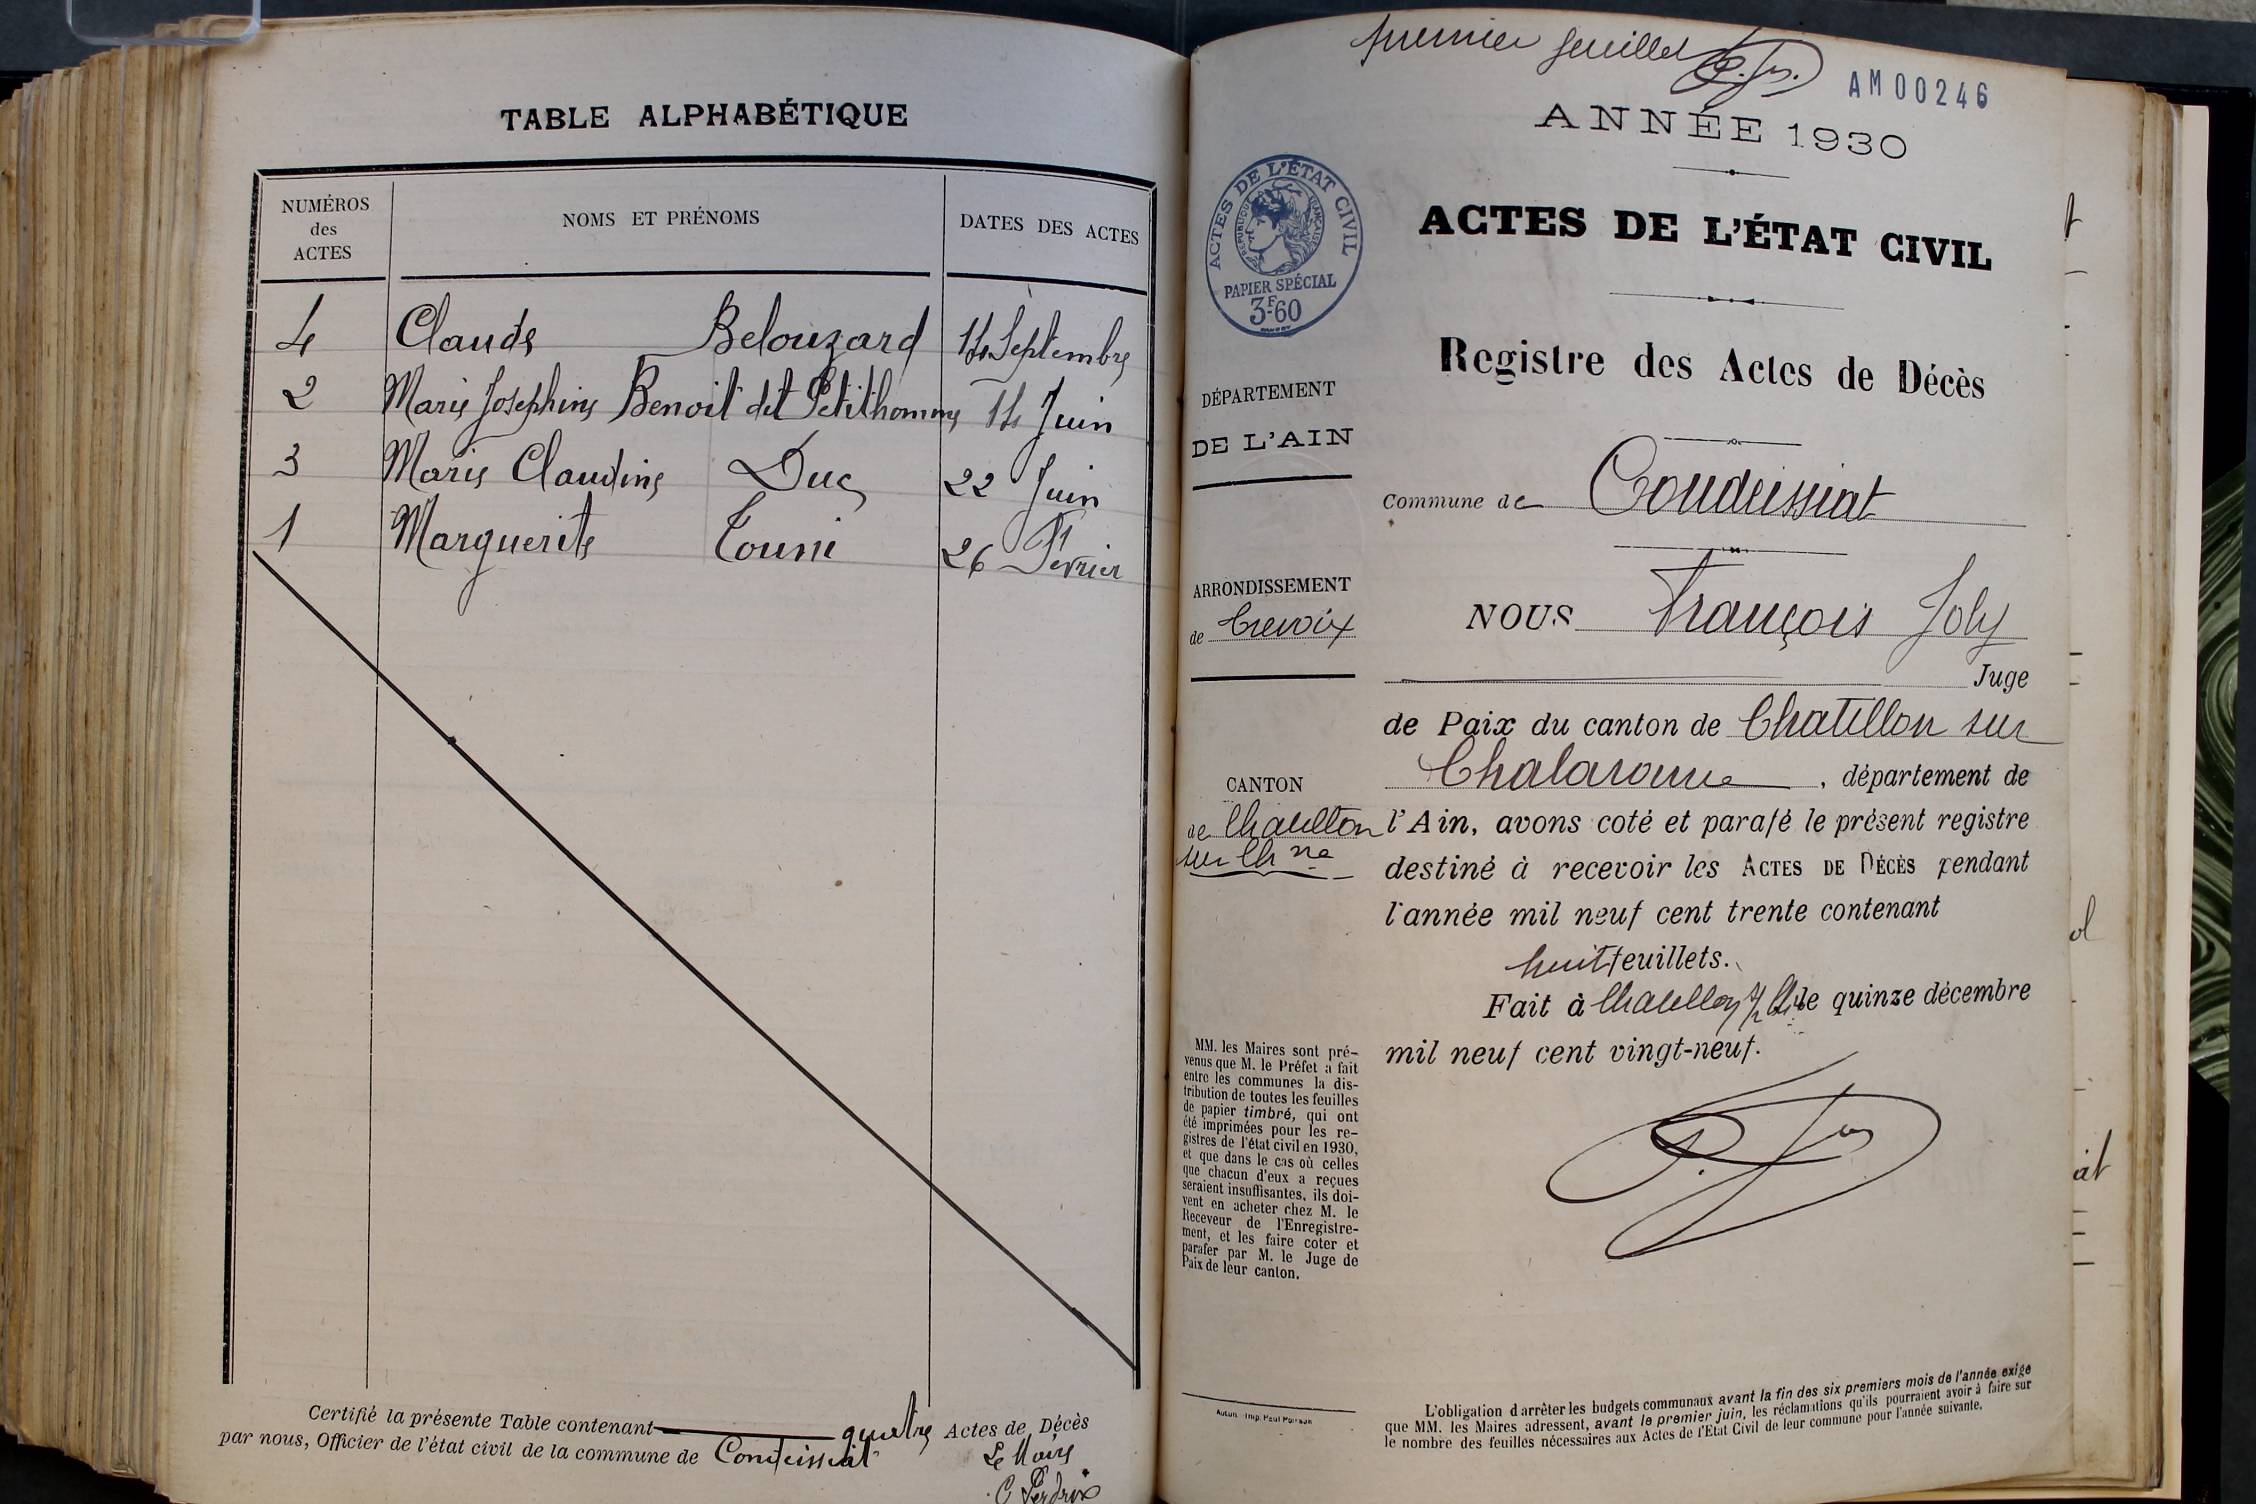 TABLE ALPHABÉTIQUE
NUMÉROS des ACTES
NOMS ET PRÉNOMS
DATES DES ACTES
4 Claude Belouzard 14 Septembre
2 Marie Josephine Benoit dit Petithomme 14 Juin
3 Marie Claudine Duc 22 Juin
1 Marguerite Touni 26 Février
Certifié la présente Table contenant quatre Actes de Décès
par nous, Officier de l'état civil de la commune de Condeissiat
Le Maire
C Perdrix
premier feuillet
AM00246
ANNÉE 1930
ACTES DE L'ÉTAT CIVIL
RÉPUBLIQUE FRANÇAISE
PAPIER SPÉCIAL
3F60
ACTES DE L'ÉTAT CIVIL
Registre des Actes de Décès
DÉPARTEMENT
DE L'AIN
Commune de Condeissiat
ARRONDISSEMENT
de Trevoux
NOUS François Joly
Juge
de Paix du canton de Chatillon sur
Chalaronne, département de
CANTON
de Chatillon
sur Ch ne
l'Ain, avons coté et parafé le présent registre
destiné à recevoir les ACTES DE DÉCÈS pendant
l'année mil neuf cent trente contenant
huit feuillets.
Fait à Chatillon s/ Ch le quinze décembre
mil neuf cent vingt-neuf.
MM. les Maires sont pré-
venus que M. le Préfet a fait
entre les communes la dis-
tribution de toutes les feuilles
de papier timbré, qui ont
été imprimées pour les re-
gistres de l'état civil en 1930,
et que dans le cas où celles
que chacun d'eux a reçues
seraient insuffisantes, ils doi-
vent en acheter chez M. le
Receveur de l'Enregistre-
ment, et les faire coter et
parafer par M. le Juge de
Paix de leur canton.
Autun. - Imp. Paul Poirson
L'obligation d'arrêter les budgets communaux avant la fin des six premiers mois de l'année exige
que MM. les Maires adressent, avant le premier juin, les réclamations qu'ils pourraient avoir à faire sur
le nombre des feuilles nécessaires aux Actes de l'État Civil de leur commune pour l'année suivante.